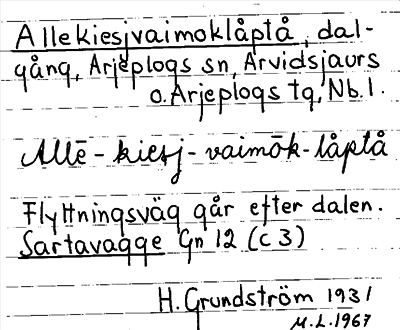 Allekiesjvaimoklåptå, dal-
gång, Arjeplogs sn, Arvidsjaurs
o. Arjeplogs tg, Nb.l.
Allē-kiesj-vaimōk-låptå
Flyttningsväg går efter dalen.
Sartavagge Gn 12 (C3)
H. Grundström 1931
M.L. 1967